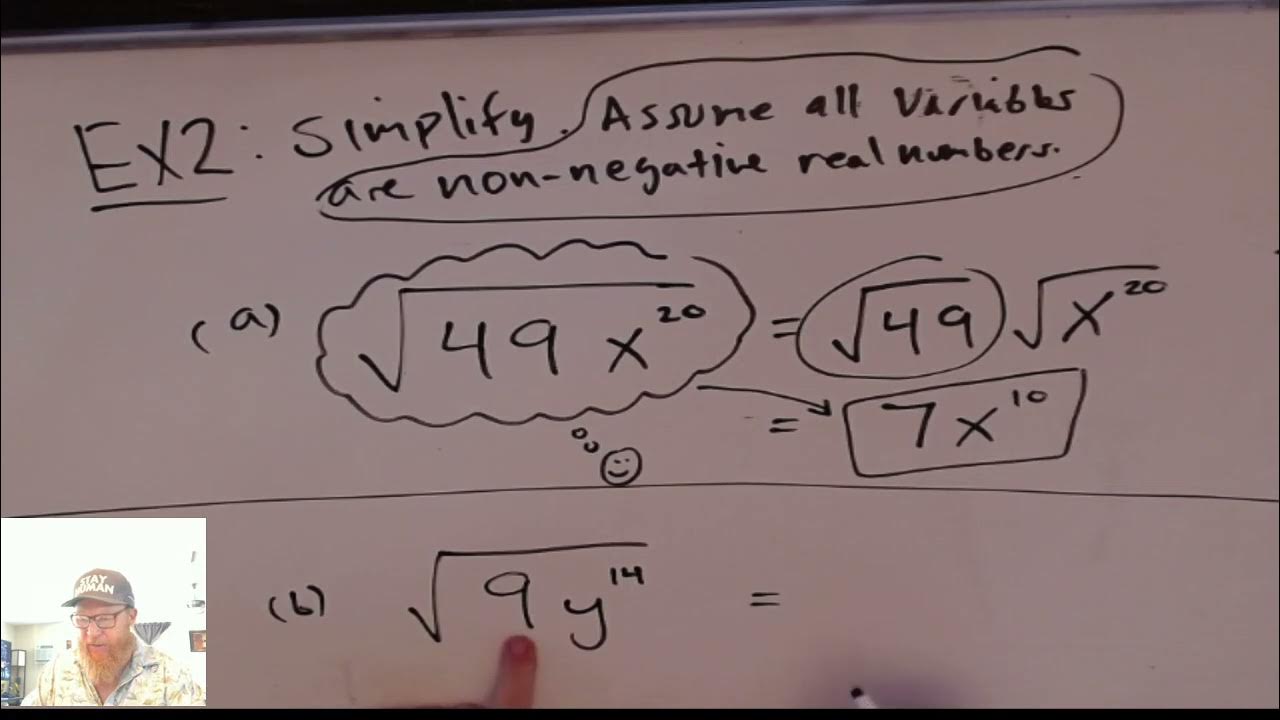 Ex2: Simplify. Assume all variables
are non-negative real numbers.
(a) √49x²⁰ = √49 √x²⁰
= 7x¹⁰
(b) √9y¹⁴ =
STAY
HUMAN